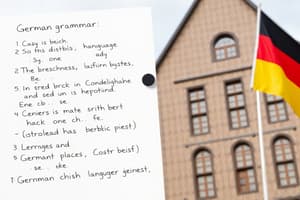 German grammar:
1 Casy is beich.
2 So fns distbls, hanguage
Sy, one ady
2 The breschness,
Be.
5. In sred brck in Condelighahe
and sed un is hepotand.
Ene cb.. se.
4 Ceniers is mate srith bert
hack one ch.. fe.
- (strolead has berblic piest)
3 Lerrages and
5 Germant places, Costr beisf)
se.. uke
7 Gernman chish languger geinest,